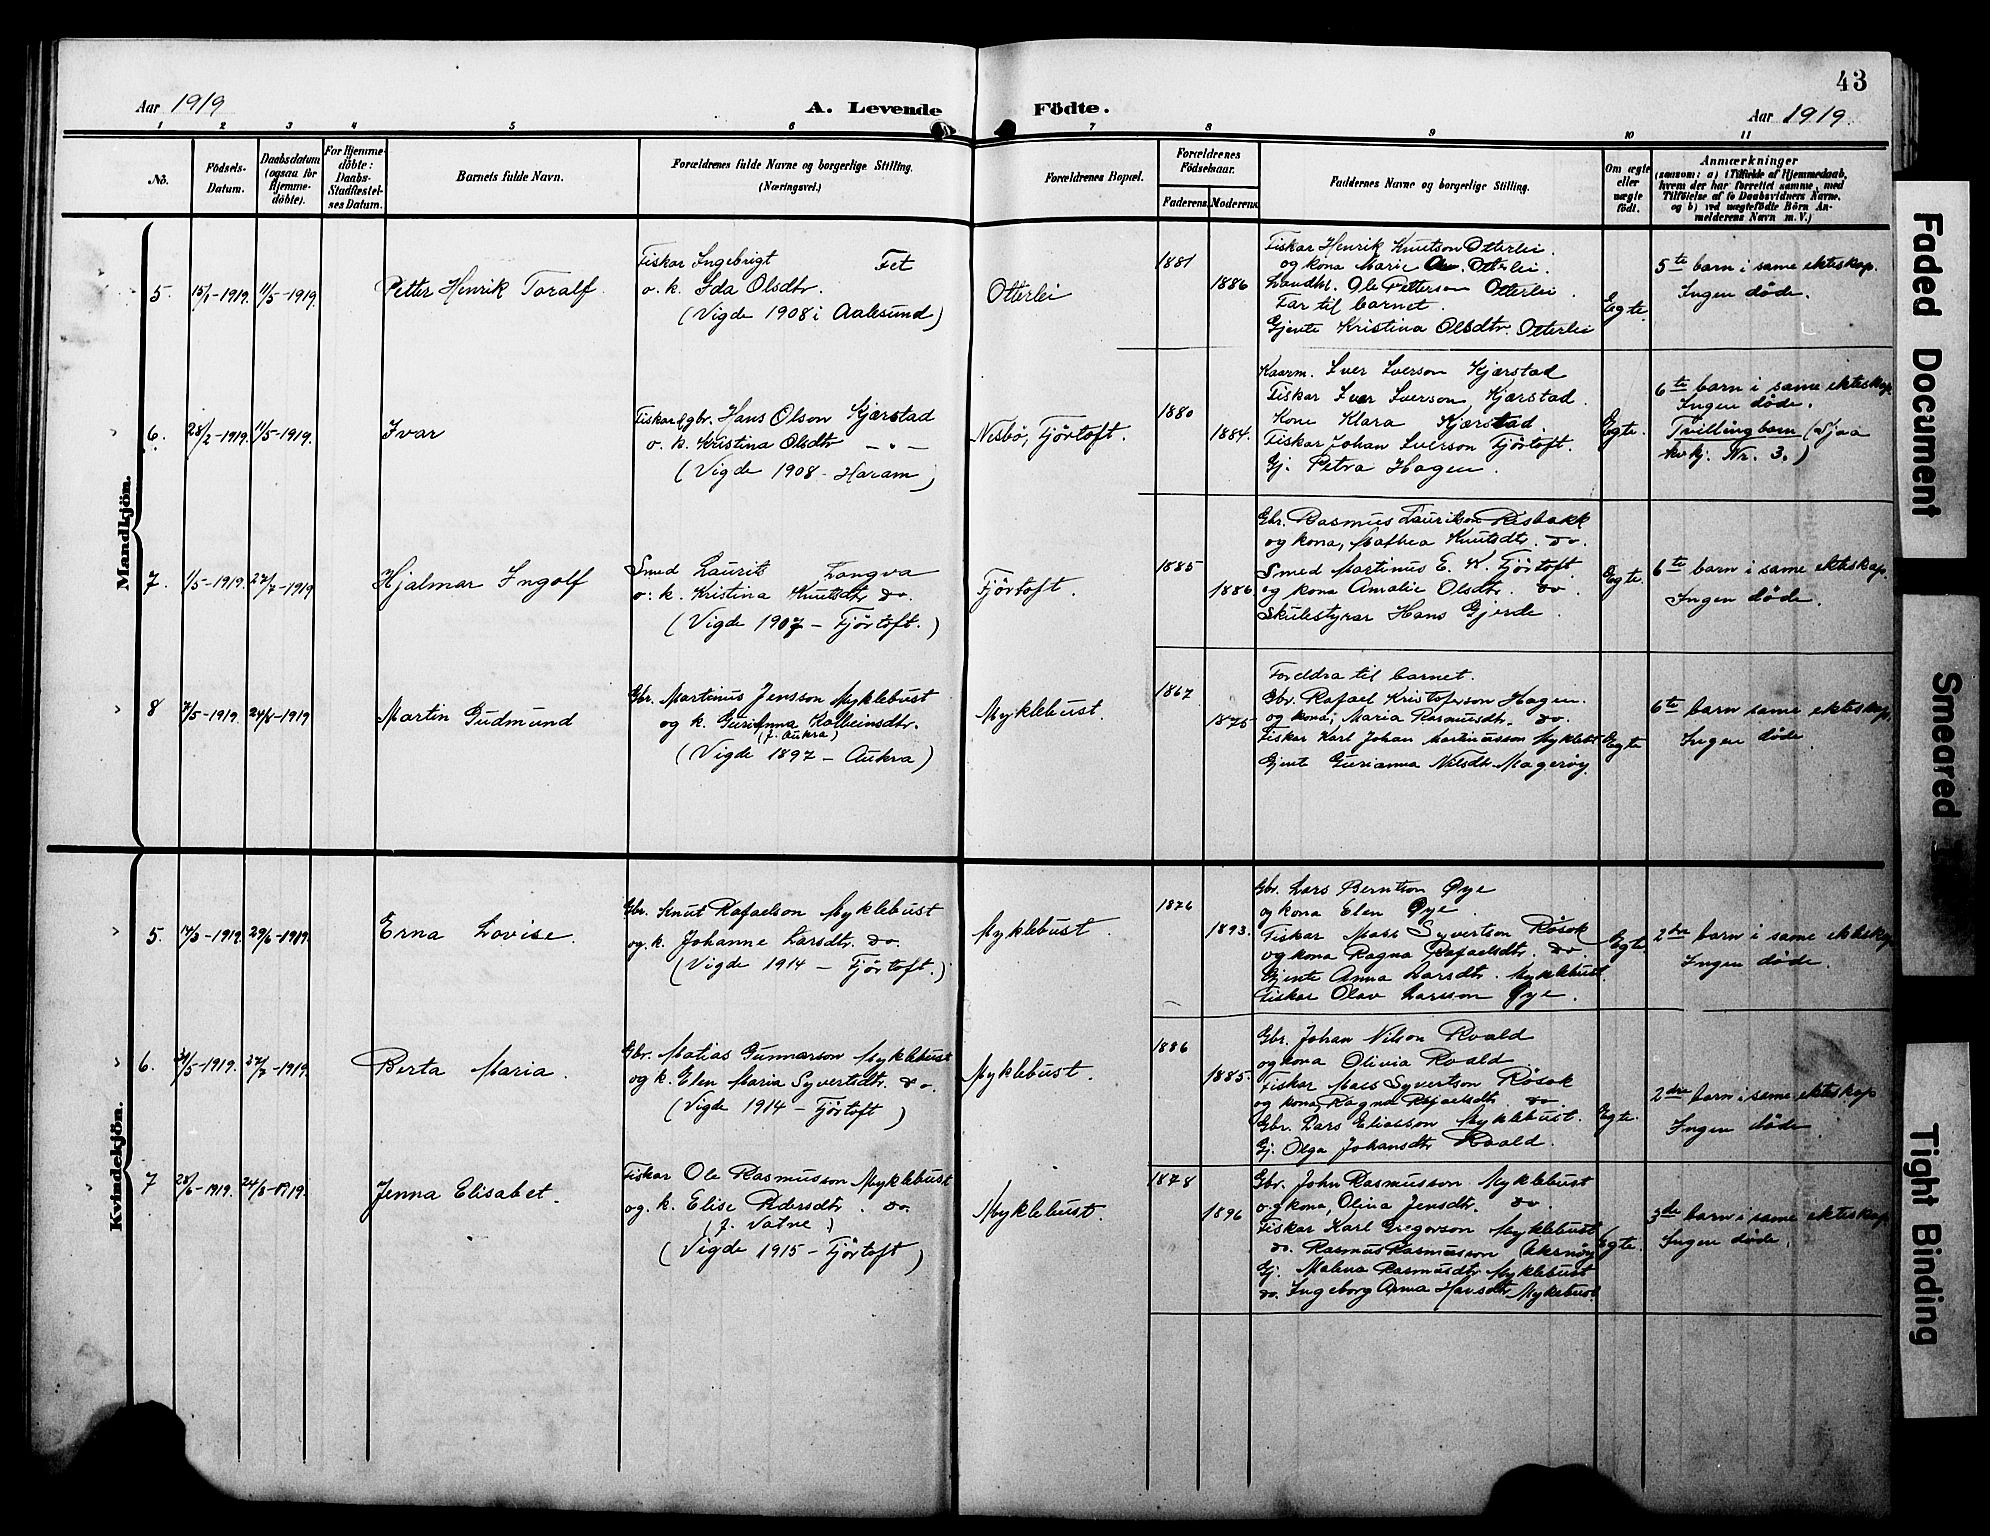 43
Aar 1919
A. Levende Födte.
Aar 1919.
1 2 3 4 5 6 7 8 9 10 11
Nô.
Födsels-
Datum.
Daabsdatum
(ogsaa for
Hjemme-
döbte).
For Hjemme-
döbte:
Daabs-
Stadfæstel-
ses Datum.
Barnets fulde Navn.
Forældrenes fulde Navne og borgerlige Stilling.
(Næringsvei.)
Forældrenes Bopæl.
Forældrenes
Födselsaar.
Faderens.
Moderens.
Faddernes Navne og borgerlige Stilling.
Om ægte
eller
uægte
födt.
Anmærkninger
(saasom: a) i Tilfælde af Hjemmedaab,
hvem der har forrettet samme, med
Tilföielse af to Daabsvidners Navne,
og b) ved uægtefödte Börn An-
melderens Navn m. V.)
Mandkjön.
5.
15/1-1919.
11/5-1919.
Petter Henrik Toralf.
Fiskar Ingebrigt Fet
o. k. Ida Olsdtr.
(Vigde 1908 i Aalesund)
Otterlei
1881
1886
Fiskar Henrik Knutson Otterlei.
og kona Marie Otterlei.
Landhl. Ole Petterson Otterlei.
Far til barnet.
Gjente Kristina Olsdtr. Otterlei
Egte.
5te barn i same ekteskap.
Ingen döde.
6.
28/2-1919.
11/5-1919.
Ivar
Fiskar & gbr. Hans Olson Kjærstad
o. k. Kristina Olsdtr - " -
(Vigde 1908 - Haram)
Nesbö, Fjörtoft.
1880
1884.
Kaarm. Iver Iverson Kjærstad
Fiskar Iver Iverson Kjærstad.
Kone Klara Kjærstad.
Fiskar Johan Iverson Fjörtoft.
Gj. Petra Hagen.
Egte.
6te barn i same ekteskap.
Ingen döde.
Tvillingbarn (Sjaa
kvkj. Nr. 3.)
7.
1/5-1919.
27/7-1919
Hjalmar Ingolf
Smed Laurits Longva
o: k. Kristina Knutsdtr do.
(Vigde 1907 - Fjörtoft.)
Fjörtoft.
1885
1886
Gbr. Rasmus Lauritson Risbakk
og kona, Mathea Knutsdtr. do.
Smed Martinus E. K. Fjörtoft.
og kona Amalie Olsdtr. do.
Skulestyrar Hans Gjerde.
Egte
6te barn i same ekteskap.
Ingen döde.
8
7/5-1919.
24/8-1919
Martin Gudmund
Gbr. Martinus Jensson Myklebust
og k. Gurianna Kolbeinsdtr.
(f. Aukra)
(Vigde 1897 - Aukra)
Myklebust.
1867
1875
Foreldra til barnet.
Gbr. Rafael Kristoferson Hagen.
og kona, Maria Rasmusdtr. do.
Fiskar Karl Johan Martinusson Myklebt
Gjent Gurianna Nilsdtr. Magerøy.
Egte
6te barn same ekteskap.
Ingen döde.
Kvindekjön.
5.
14/3-1919.
29/6-1919.
Erna Lovise.
Gbr. Knut Rafaelson Myklebust
og k. Johanne Larsdtr. do.
(Vigde 1914 - Fjörtoft.)
Myklebust.
1876
1893.
Gbr. Lars Berntson Øye
og kona Elen Øye.
Fiskar Mass Syvertson Røsok
og kona Ragna Rafaelsdtr. do.
Gjente Anna Larsdtr. Myklebust.
Fiskar Olav Larsson Øye.
Egte.
2dre barn i same ekteskap
Ingen döde.
6.
/5-1919.
27/7-1919.
Berta Maria.
Gbr. Matias Gunnarson Myklebust
og k. Elen Maria Syvertsdtr. do.
(Vigde 1914 - Fjörtoft)
Myklebust.
1886
1885.
Gbr. Johan Nilson Roald
og kona Olivia Roald
Fiskar Mass Syvertson Røsok
og kona, Ragna Rafaelsdtr. do.
Gbr. Lars Eliasson Myklebust.
Gj. Olga Johansdtr Roald.
Egte.
2dre barn i same ekteskap
Ingen döde.
7
28/6-1919.
24/8-1919.
Jenna Elisabet.
Fiskar Ole Rasmusson Myklebust
og. k. Elise Pedersdtr. do.
(f. Vatne)
(Vigde 1915 - Fjörtoft)
Myklebust.
1878
1896
Gbr. John Rasmusson Myklebust
og kona, Olina Jensdtr. do.
Fiskar Karl Gregorson Myklebust
do. Rasmus Rasmusson Ukrnöy
Gj. Malena Rasmusdtr Myklebust
do. Ingeborg Anna Hansdtr Myklebust
Egte.
3de barn i same ekteskap.
Ingen döde.
Faded Document
Smeared
Tight Binding